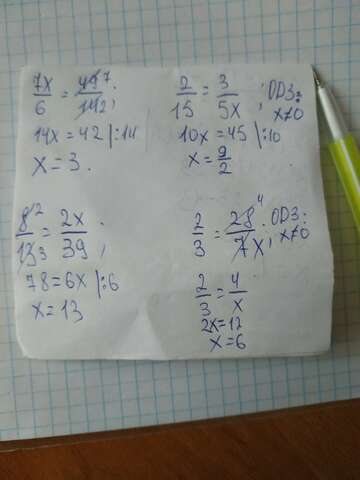 7x/6 = 49 7/14 2;
14x = 42 |:14
x = 3.
2/15 = 3/5x; OD3: x≠0
10x = 45 |:10
x = 9/2
8 2/13 3 = 2x/39;
78 = 6x |:6
x = 13
2/3 = 28 4/7x; OD3: x≠0
2/3 = 4/x
2x = 12
x = 6